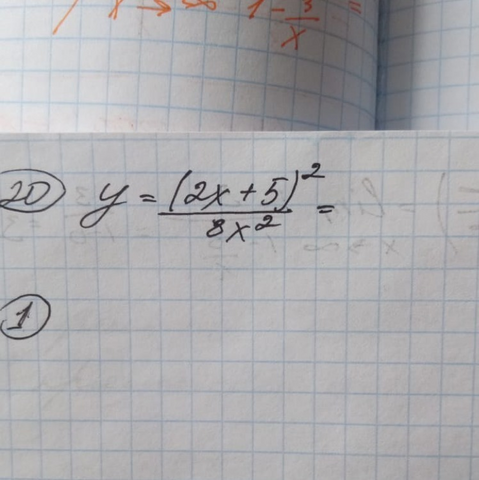 x → ∞ 1 - 3/x =
20 y = (2x + 5)² / 8x² =
1